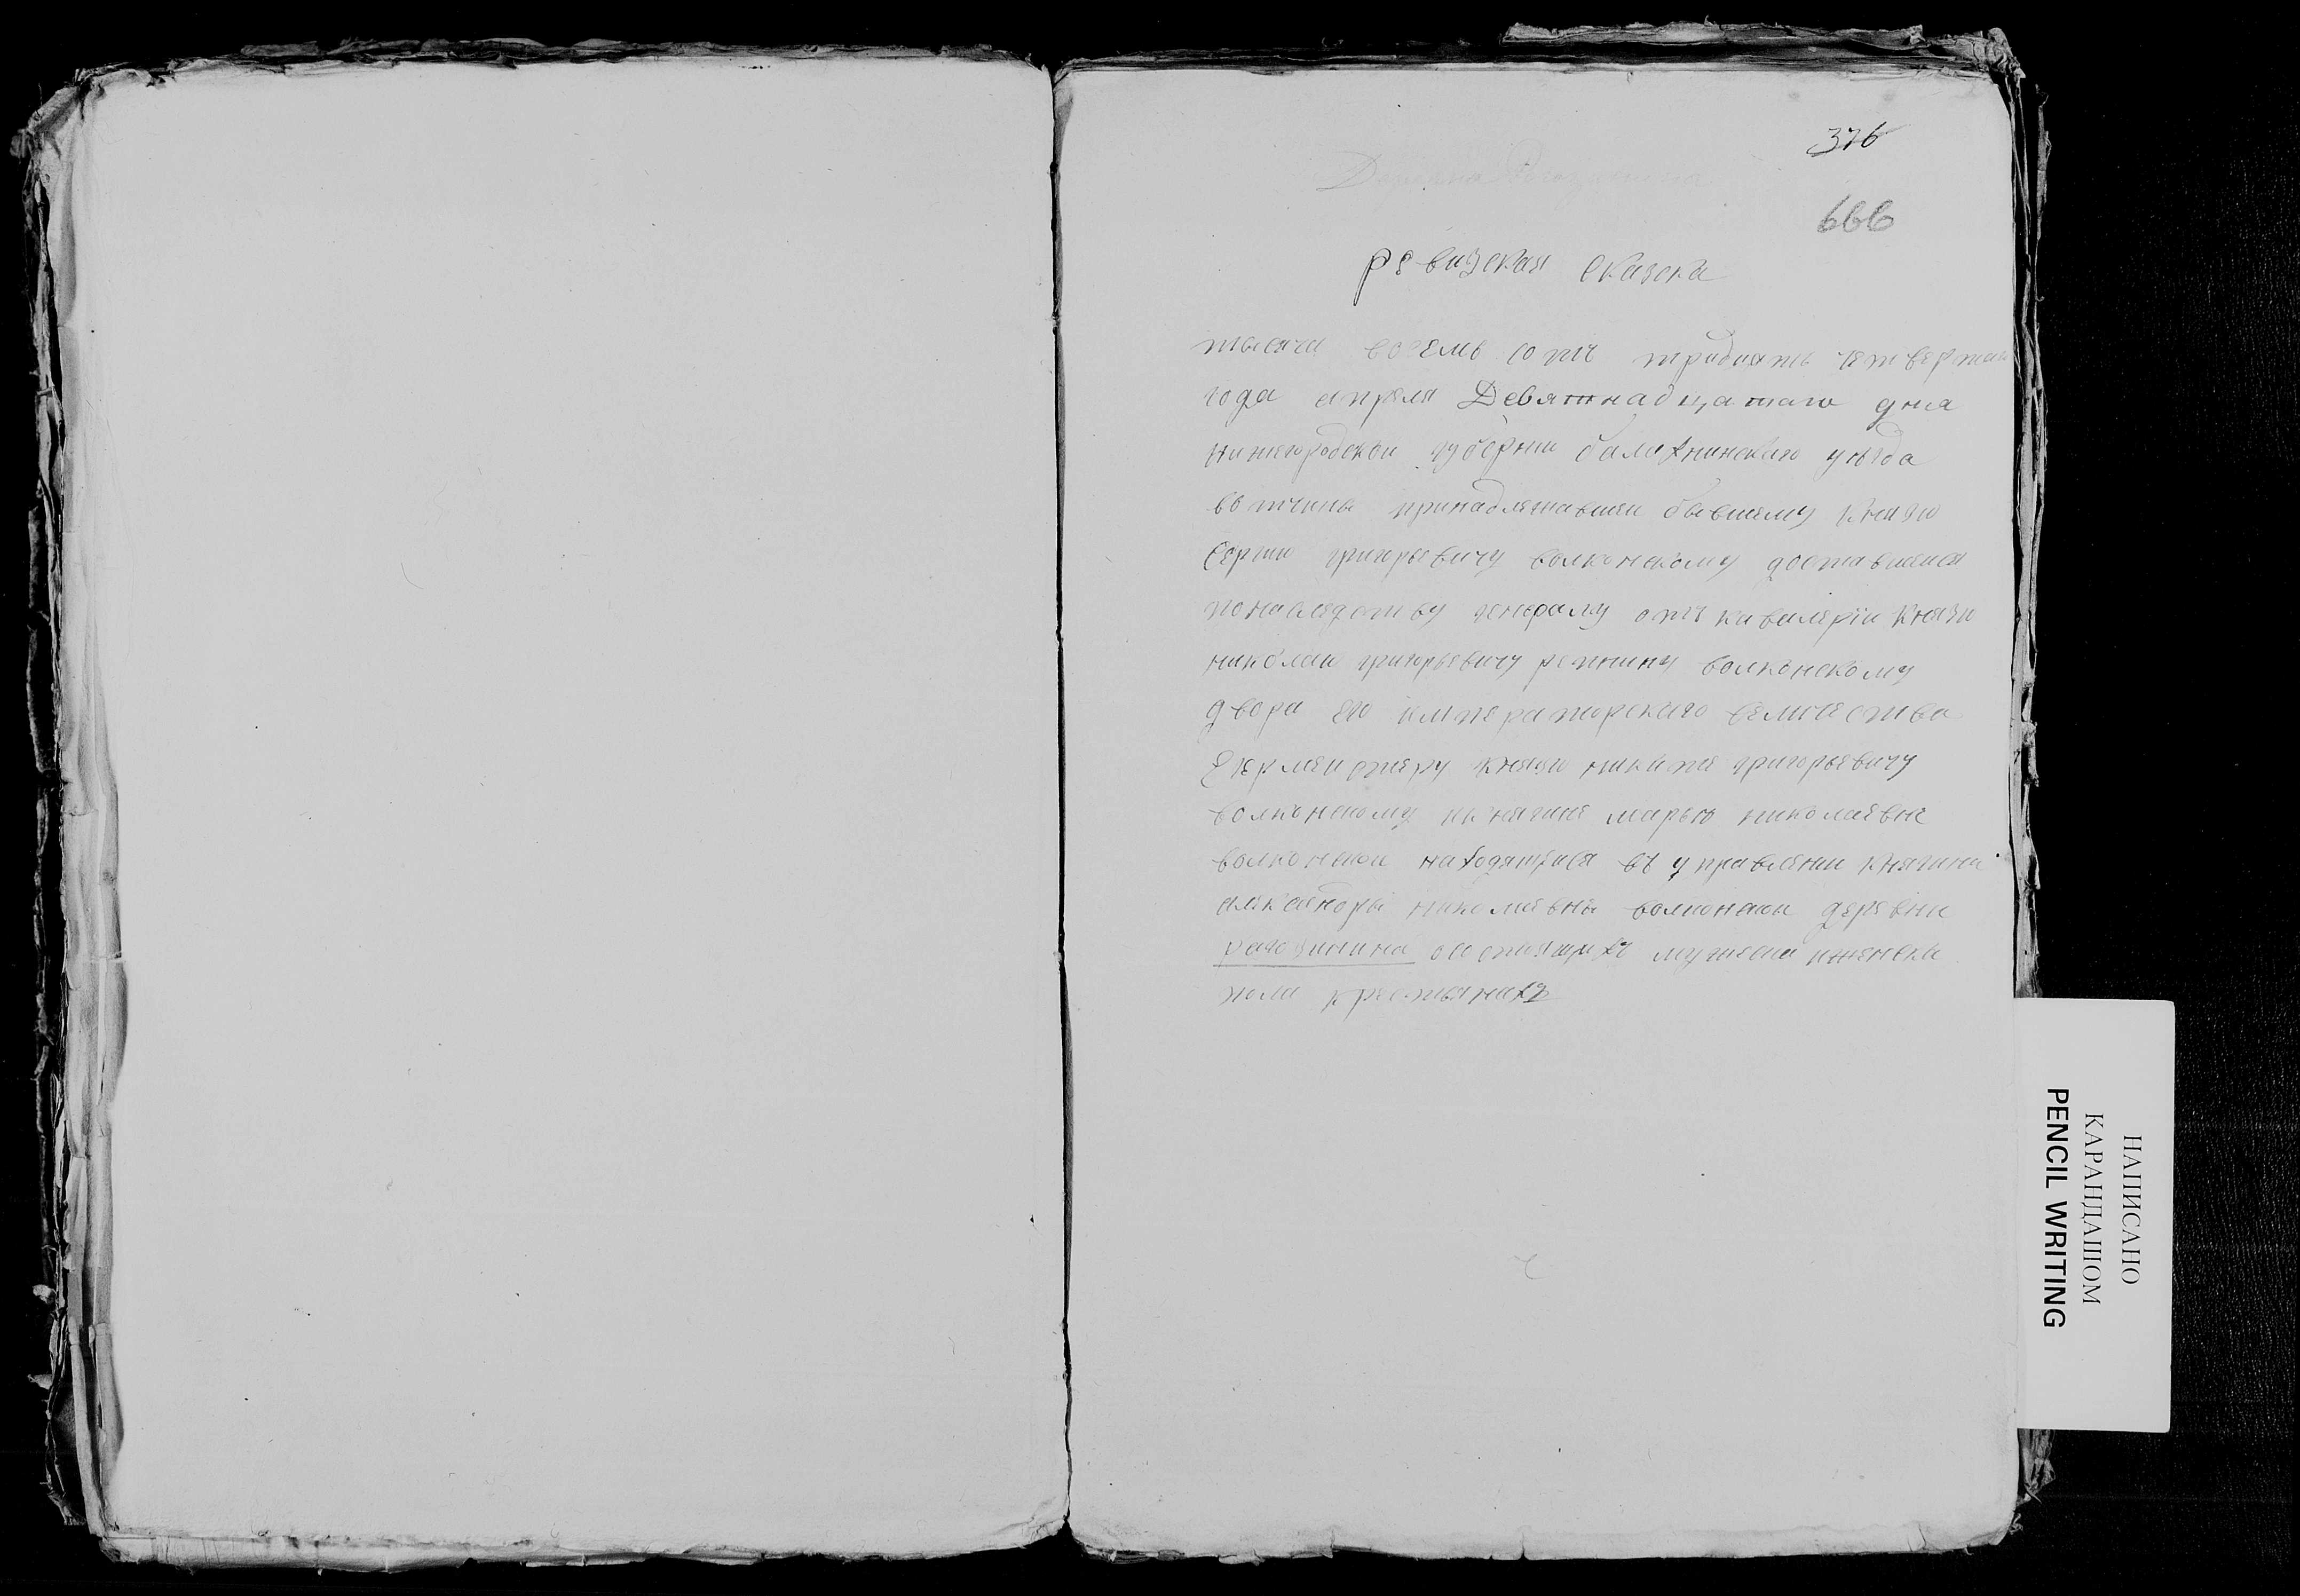 376
Деревня Рагозинина
666
Ревизская сказка
тысяча восемь сотъ тридцать четвертаго
года апреля Девятнадцатаго дня
нижегородской губернии балахнинскаго уезда
вотчины принадлежавшей бывшему Князю
Сергию григорьевичу волконскому доставшейся
понаследству генералу отъ кавалерiи Князю
николаю григорьевичу репнину волконскому
двора его императорскаго величества
Егермейстеру князю никите григорьевичу
волконскому икнягине марью николаевне
волконской находящейся въ управлении Княгини
александры николаевны волконской деревни
рагозинина осостоящихъ мужеска иженска
пола крестьянахъ
НАПИСАНО
КАРАНДАШОМ
PENCIL WRITING